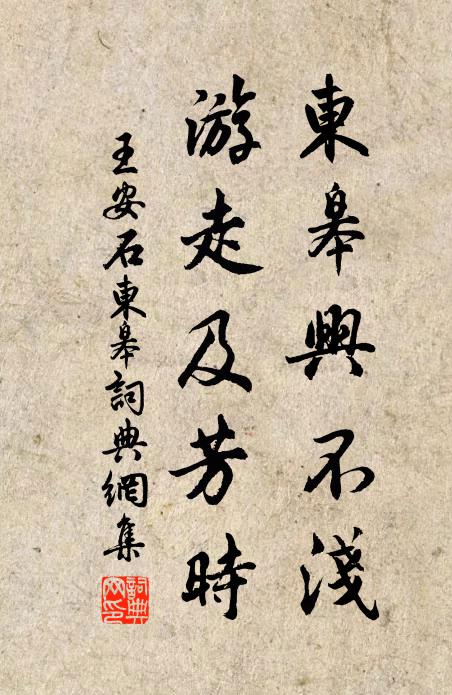 東皋興不淺
游走及芳時
王安石東皋詞典網集
詞典網印